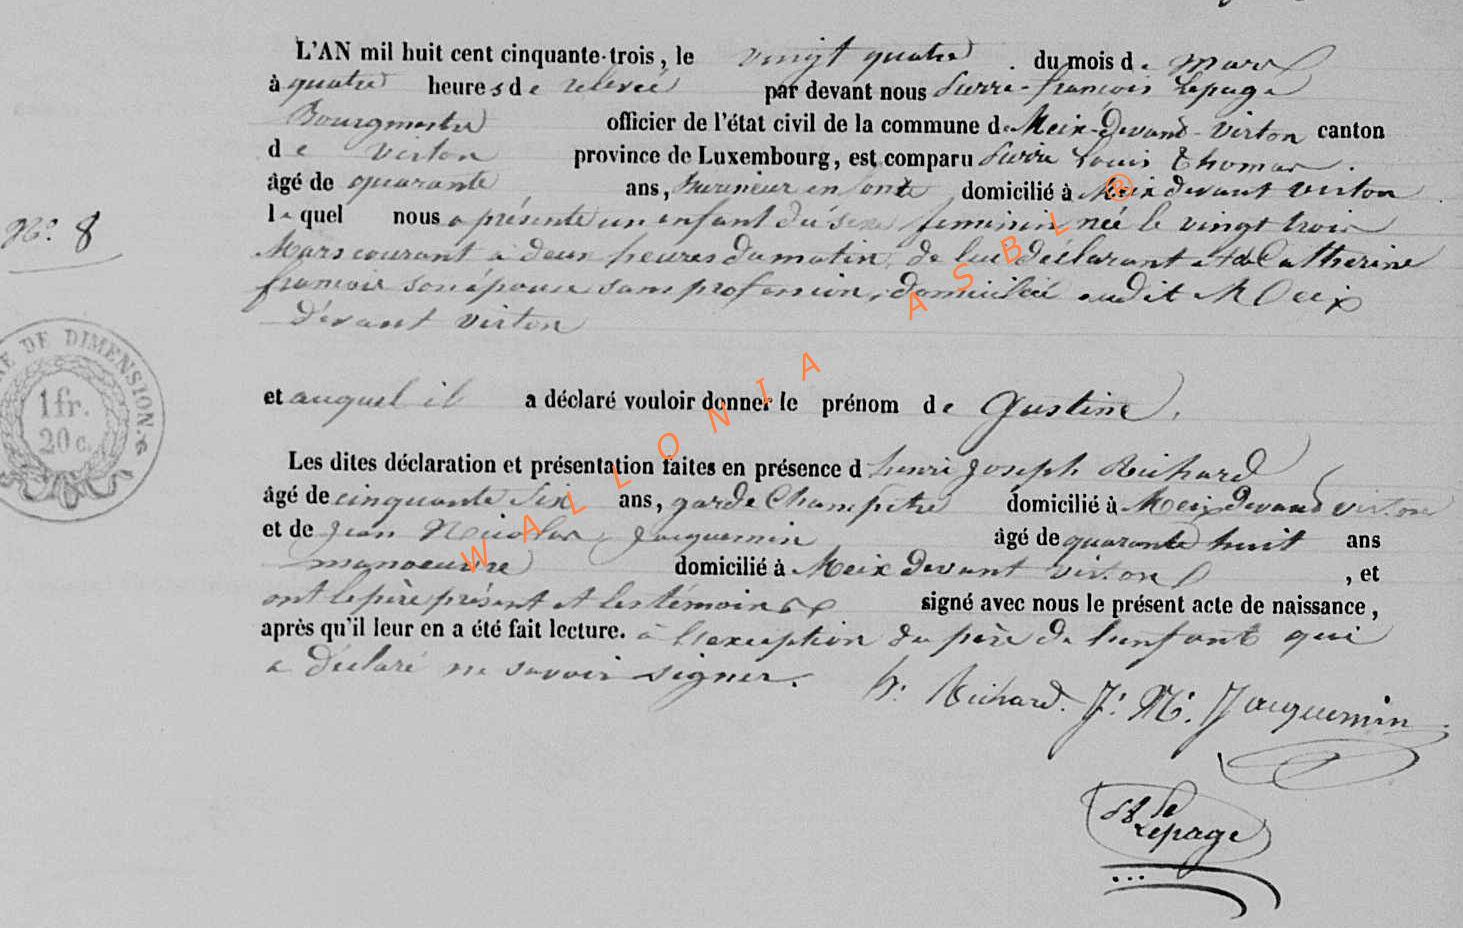 L'AN mil huit cent cinquante-trois, le vingt quatre du mois de mars
à quatre heures de relevée par devant nous Pierre-françois Lepage
Bourgmestre officier de l'état civil de la commune de Meix-devant-Virton canton
de virton province de Luxembourg, est comparu Pierre Louis Thomas
âgé de quarante ans, en fonte domicilié à Meix devant virton
lequel nous a présenté un enfant du sexe feminin née le vingt trois
Mars courant à deux heures du matin, de lui déclarant et de Catherine
francois son épouse sans profession, domiciliée audit Meix
devant virton
N° 8
et auquel il a déclaré vouloir donner le prénom de Justine,
RE DE DIMENSION.
1 fr.
20 c.
Les dites déclaration et présentation faites en présence d henri joseph Richard
âgé de cinquante six ans, garde Champêtre domicilié à Meix devant virton
et de jean Nicolas Jacquemin âgé de quarante huit ans
manoeuvre domicilié à Meix devant virton, et
ont le père présent et les témoins signé avec nous le présent acte de naissance,
après qu'il leur en a été fait lecture. à l'exception du père de l'enfant qui
a déclaré ne savoir signer.
h. Richard. J. N. Jacquemin
Lepage
WALLONIA ASBL ®